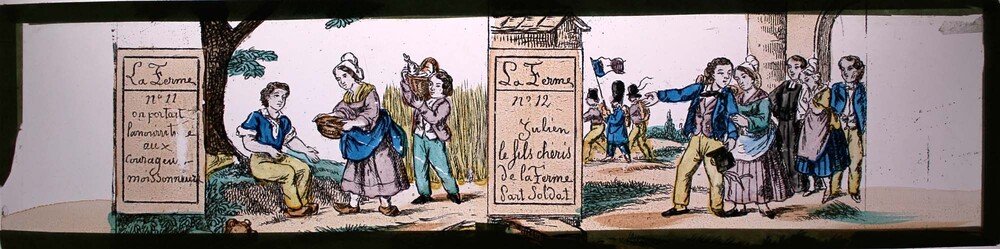 La Ferme
nº 11
on portait
la nourriture
aux
Courageu-
moissonneurs
La Ferme
nº 12
Julien
le fils cheris
de la Ferme
Part Soldat